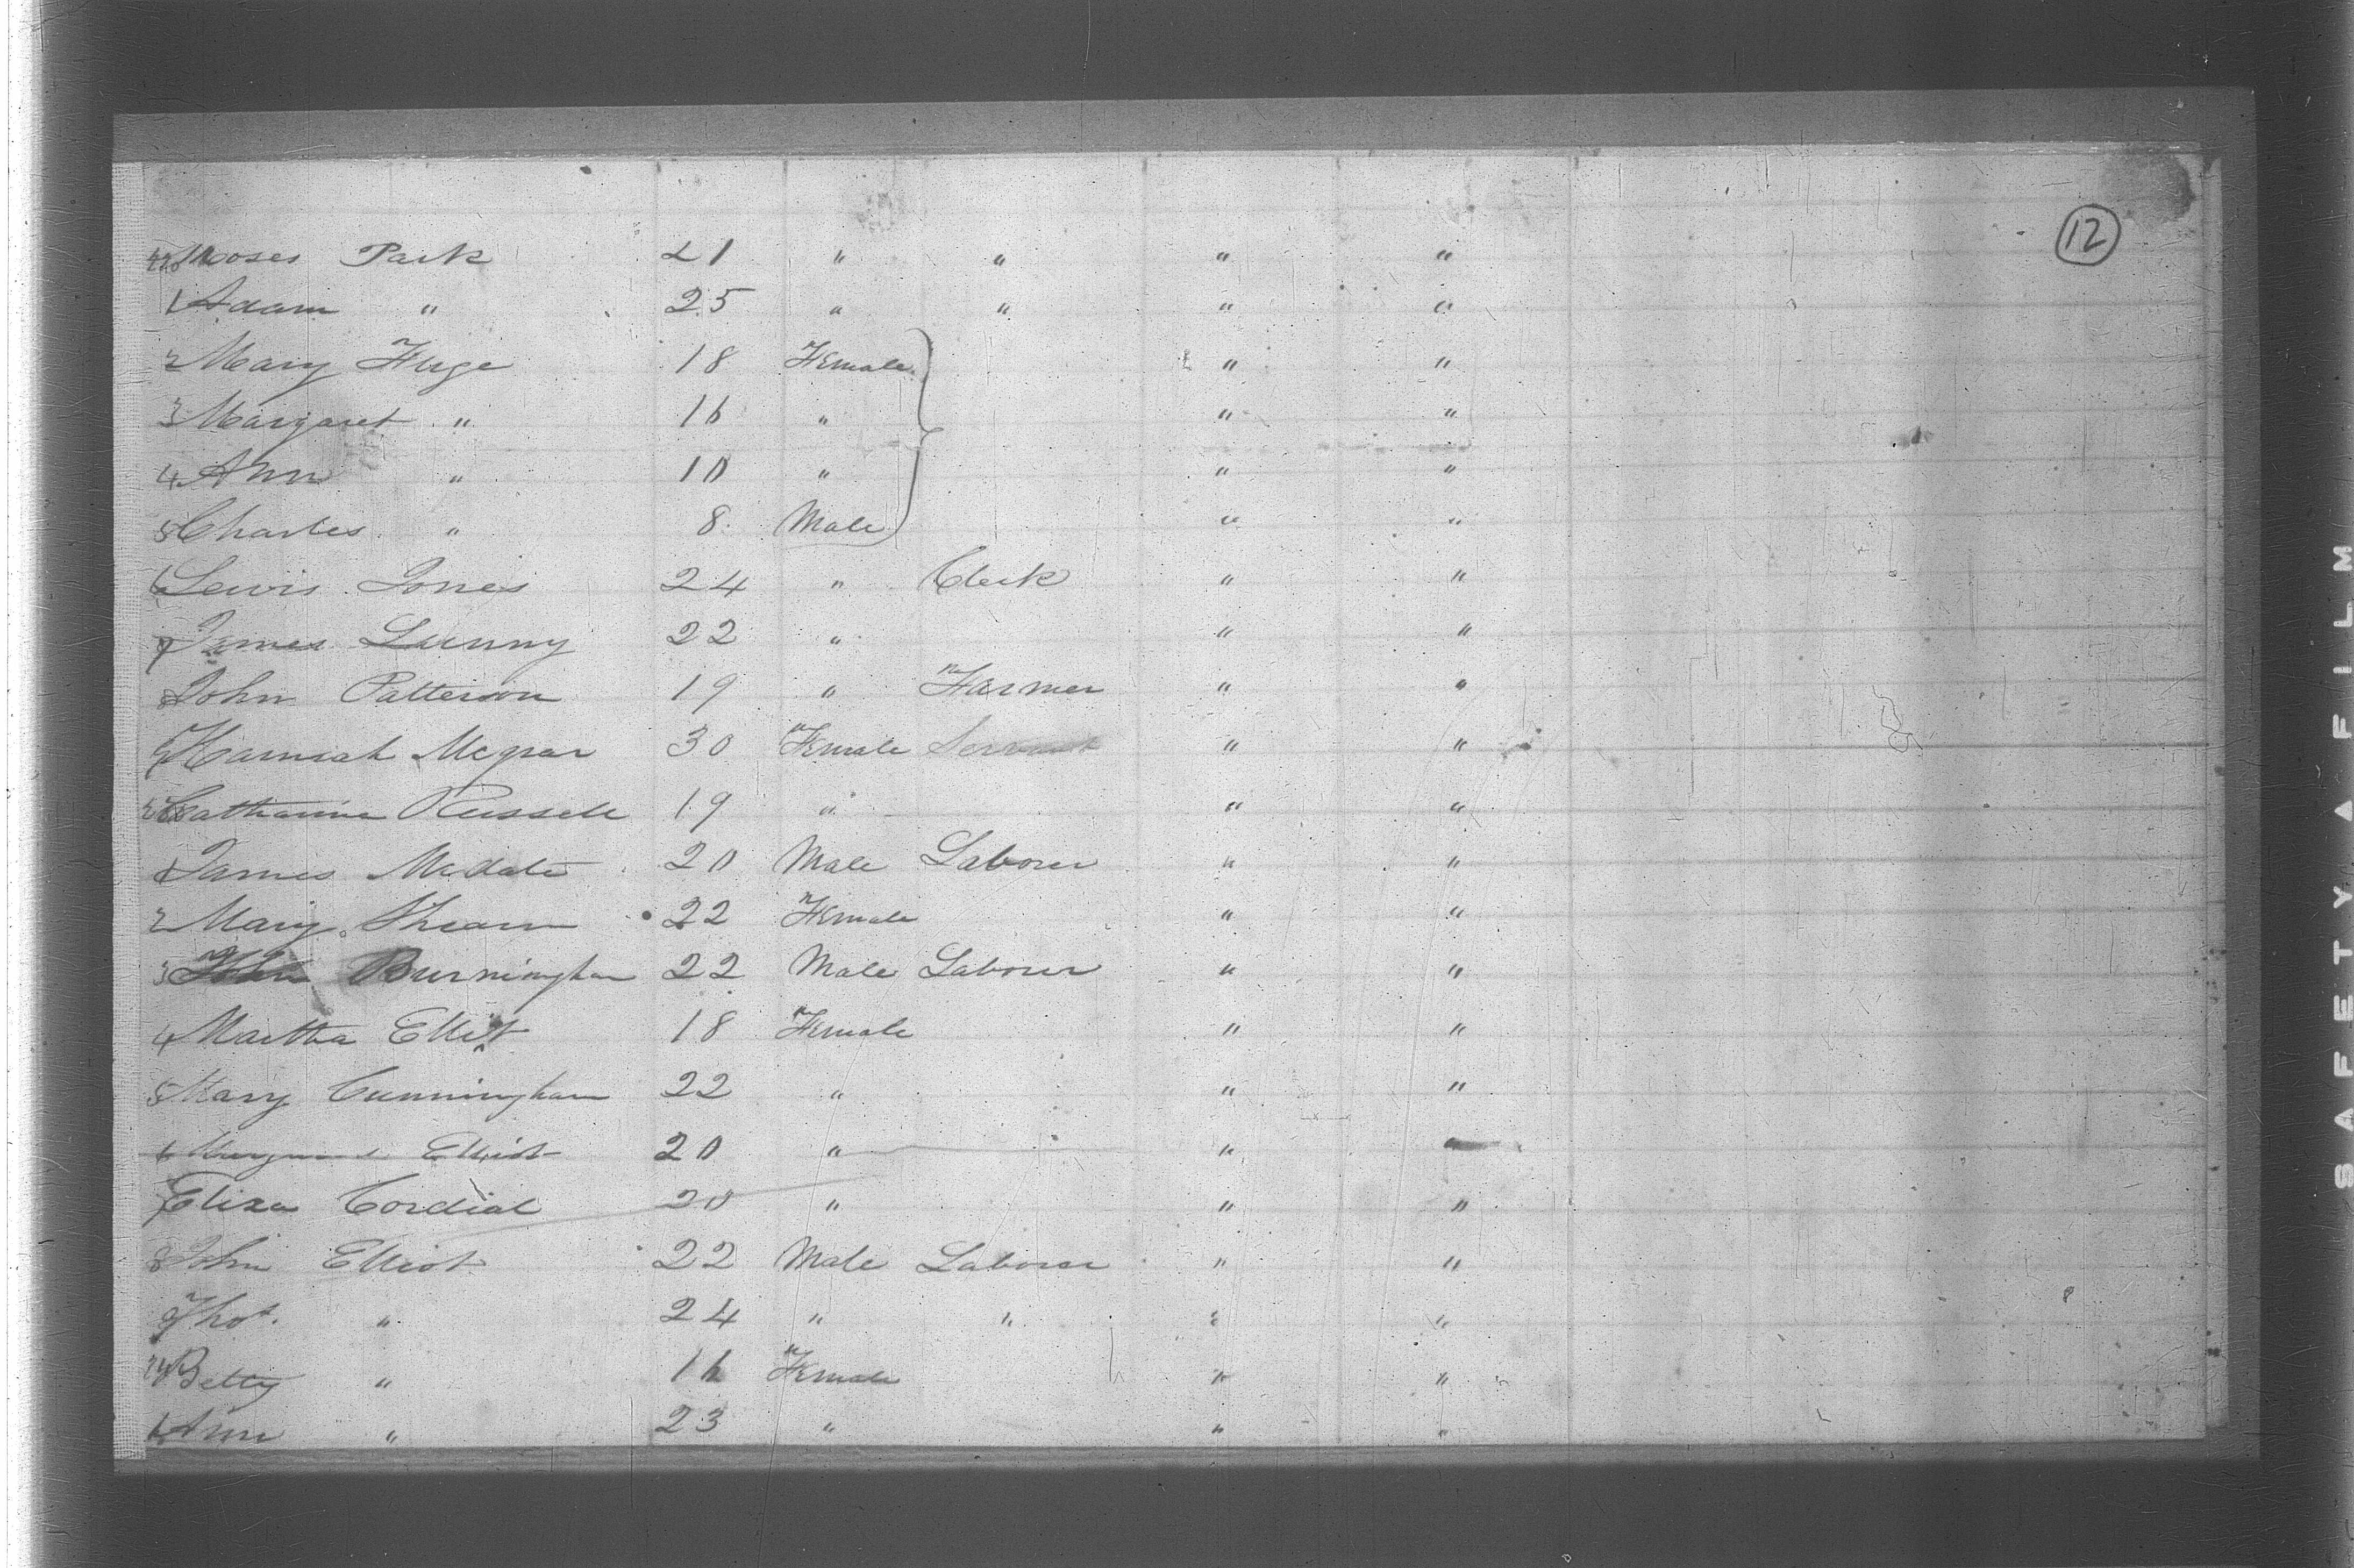 12
220 Moses Park 21 " " " "
1 Adam " 25 " " " "
2 Mary Huge 18 Female " "
3 Margaret " 16 " " "
4 Ann " 10 " " "
5 Charles " 8 Male " "
6 Lewis Jones 24 " Clerk " "
7 James Lunny 22 " " "
8 John Patterson 19 " Farmer " "
9 Hannah 30 Female Servant " "
Catharine Russell 19 " " "
1 James 20 Male Laborer " "
2 Mary 22 Female " "
3 John Burningham 22 Male Laborer " "
4 Martha Elliot 18 Female " "
5 Mary Cunningham 22 " " "
6 Elliot 20 " "
7 Eliza Cordial 20 " " "
8 John Elliot 22 Male Laborer " "
9 Thos. " 24 " " " "
Betty " 16 Female " "
1 Ann " 23 " " "
SAFETY ▲ FILM